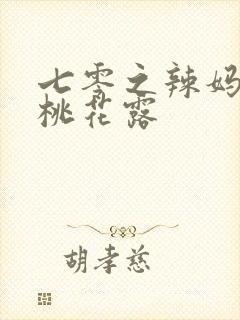 七零之辣妈
桃花露
胡孝慈